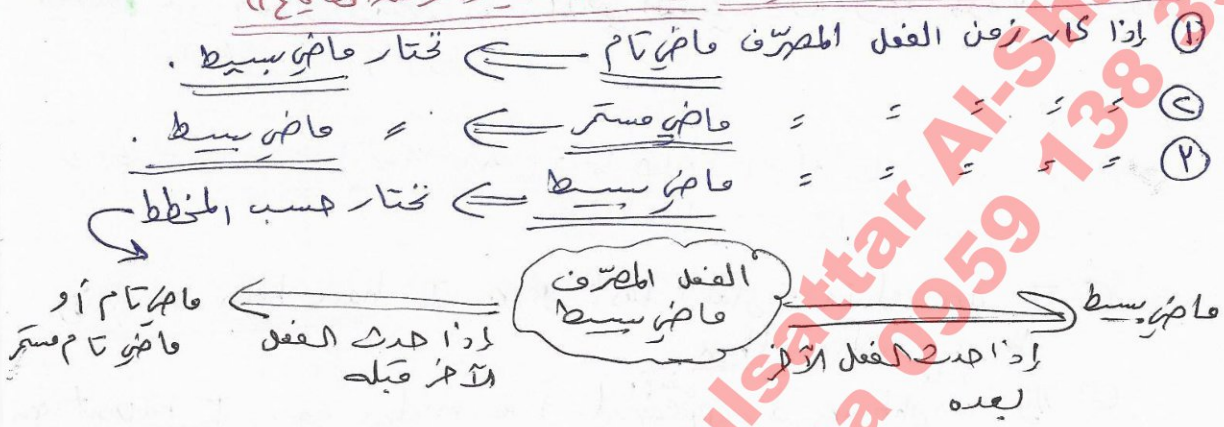 ① إذا كان زمن الفعل المصرّف ماضي تام ⇐ تختار ماضي بسيط .
② = = = = = ماضي مستمر ⇐ = ماضي بسيط .
③ = = = = = ماضي بسيط ⇐ تختار حسب المخطط
الفعل المصرّف
ماضي بسيط
ماضي بسيط
إذا حدث الفعل الآخر
بعده
إذا حدث الفعل
الآخر قبله
ماضي تام أو
ماضي تام مستمر
ulsattar Al-Sh
a 0959 138 3